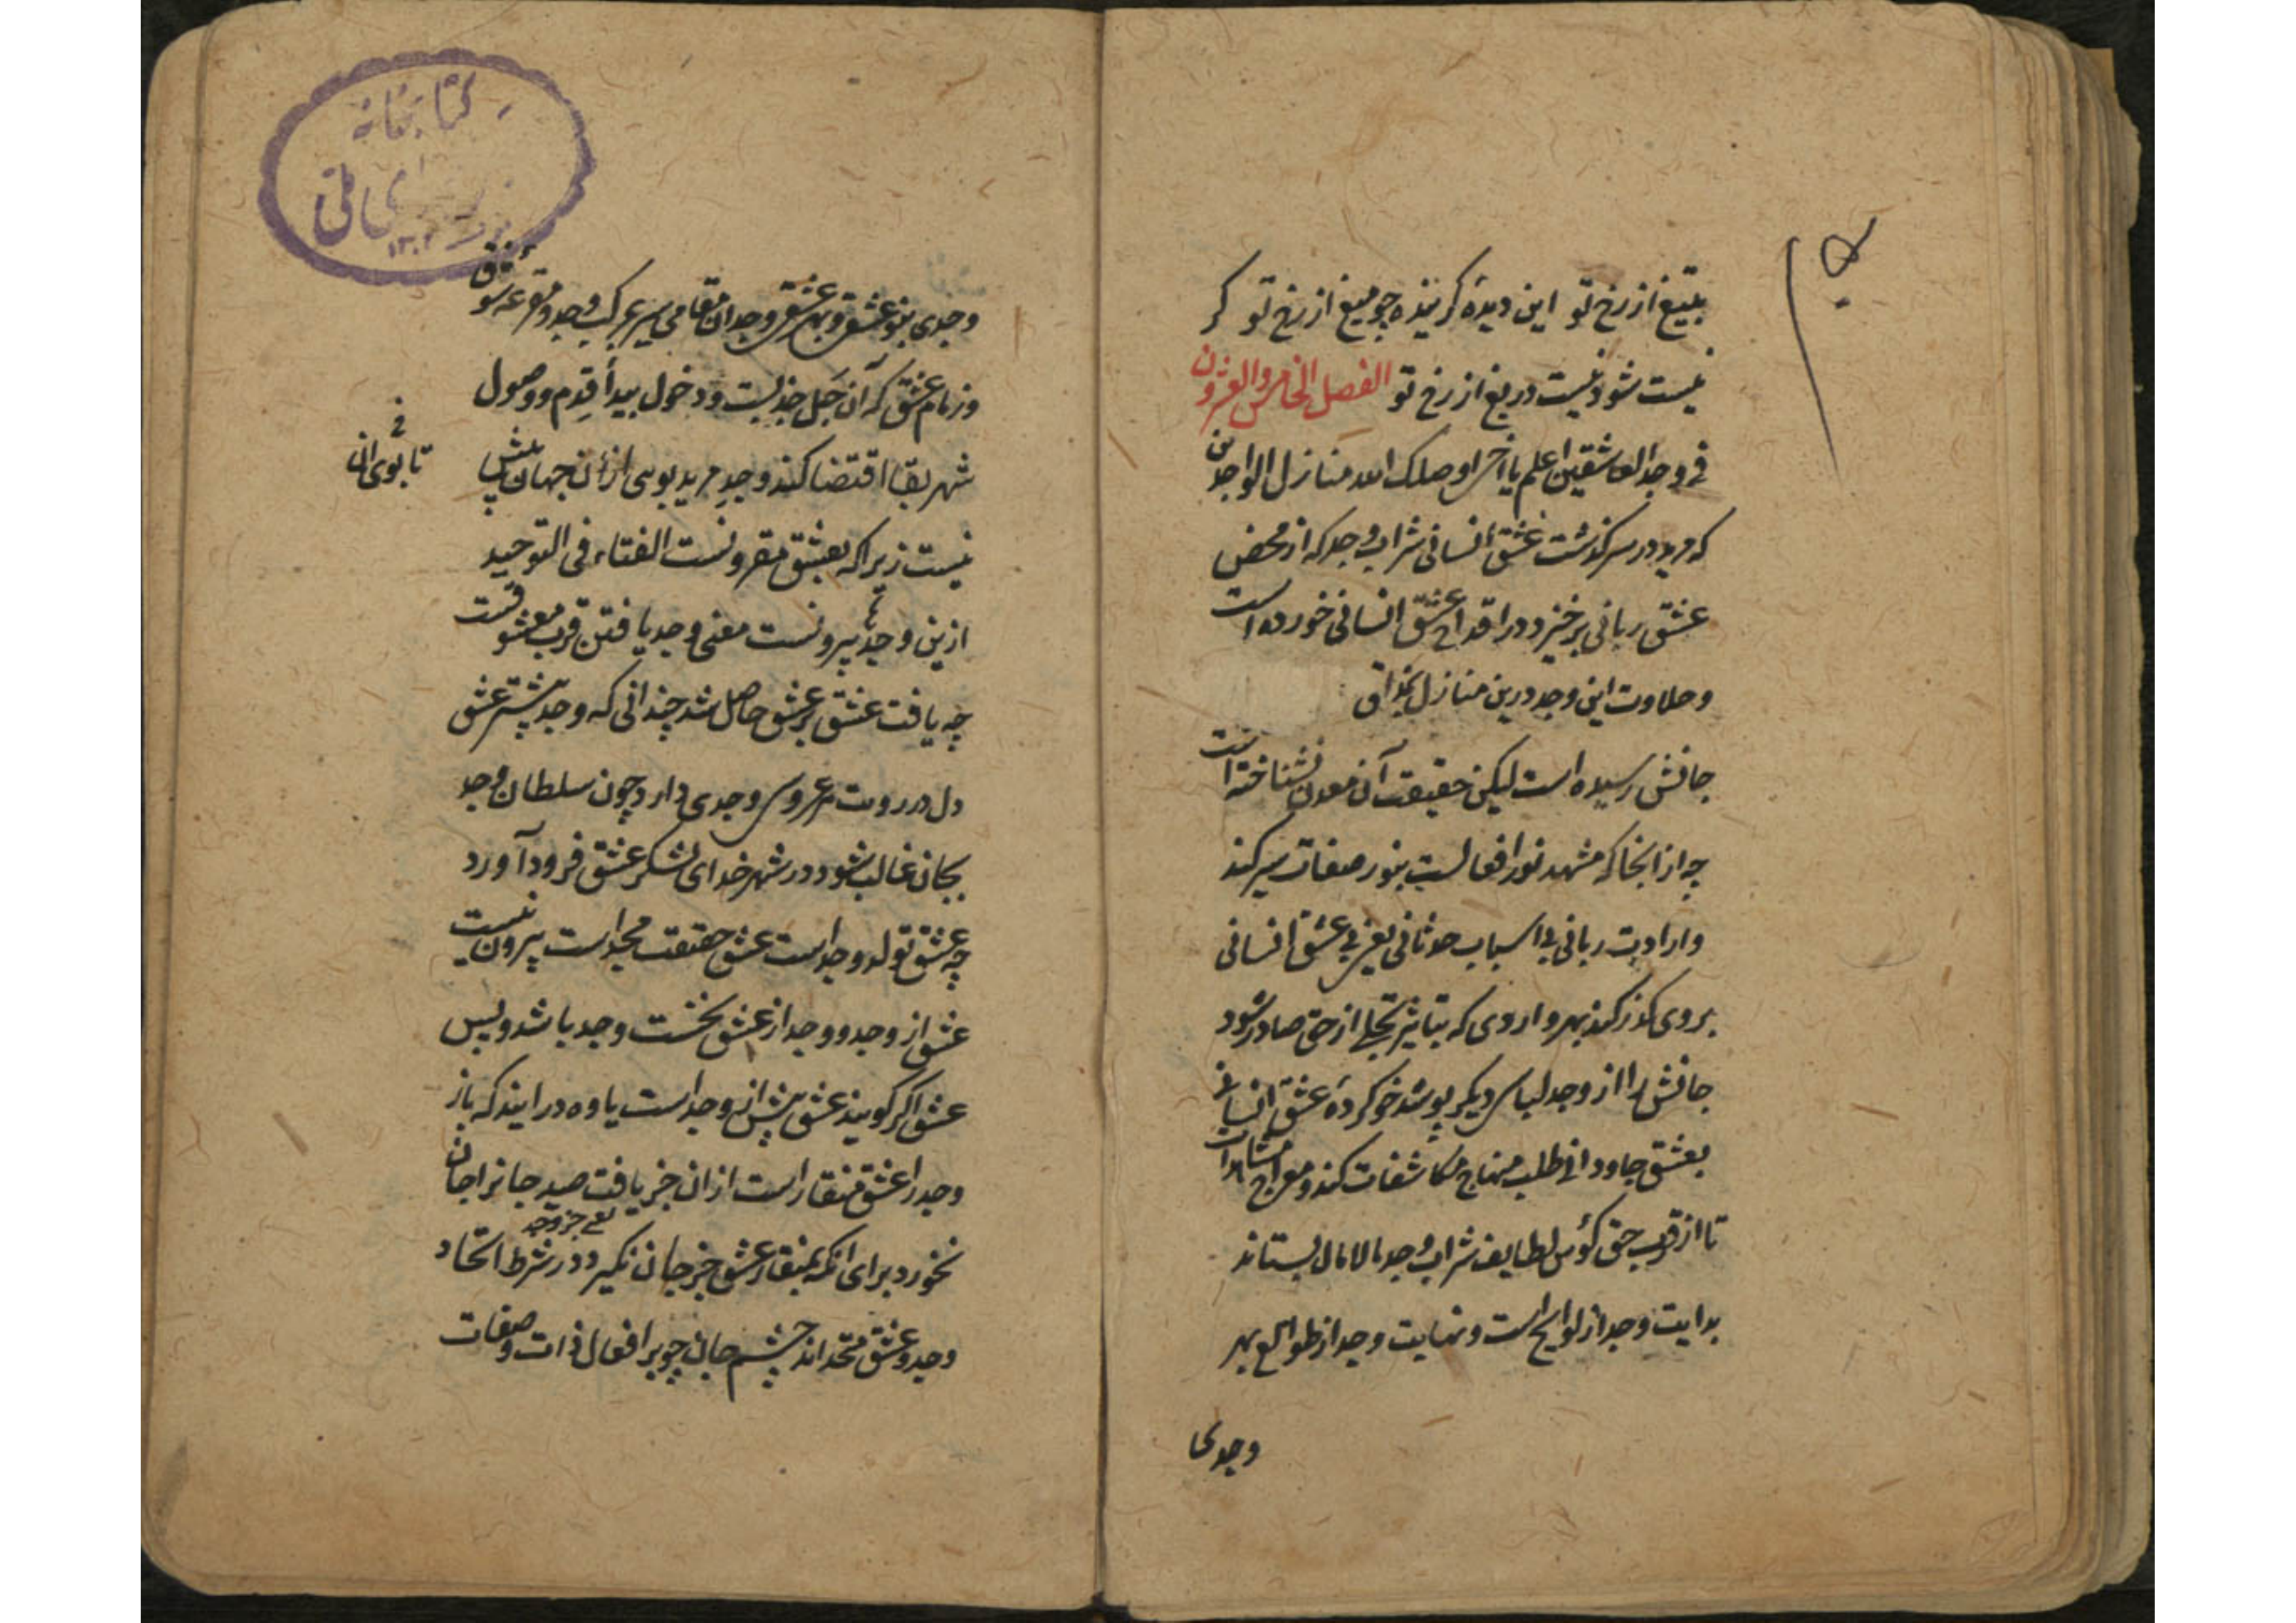 بتیغ از رخ تو این دیده کزینده چو میغ از رخ تو کر
نیست شود نیست دریغ از رخ تو الفصل الخامس والعشرون
فی وجد العاشقین اعلم یا اخی اوصلک الله منازل الواجدین
که مرید در سرکذشت عشق انسانی شراب وجد که از محض
عشق ربانی برخیزد در اقداح عشق انسانی خورده است
و حلاوت این وجد درین منازل بمذاق
جانش رسیده است لیکن حقیقت آن معدن نشناخته است
چه از انجا که مشهد نور افعالست بنور صفات سیر کند
و ارادت ربانی بی اسباب حدثانی یعنی بی عشق انسانی
بروی کذر کند بهر واردی که بتاثیر تجلی از حق صادر شود
جانش را از وجد لباس دیکر پوشد خو کردهٔ عشق انسانی
بعشق جاودانی طلب منهاج مکاشفات کند و معراج مشاهدات
تا از قرب حق کؤس لطایف شراب وجد مالامال بستاند
بدایت وجد از لوایح است و نهایت وجد از طوالع بهر
وجدی
کتابخانه
۱۳۰۲
وجدی بنو عشقی و بهر عشقی وجدی آن مقامی سیر مرکب وجد و مقرعه شوق
و زمام عشق که آن حبل جذبست و دخول بیدأ قدم و وصول
شهر بقا اقتضا کند وجد مرید بوی ازان جهان پیش
تا بوی ان
نیست زیرا که بعشق مقرونست الفناء فی التوحید
ازین وجدها بیرونست معنی وجد یافتن قرب معشوقست
چه یافت عشق بر عشق حاصل شد چندانی که وجد بیشتر عشق
دل در رویت عروس وجدی دارد چون سلطان وجد
بجان غالب شود در شهر خدای لشکر عشق فرود آورد
چه عشق تولد وجد است عشق حقیقت مجد است بیرون نیست
عشق از وجد و وجد از عشق نخست وجد باشد و پس
عشق اکر کویند عشق پیش از وجد است یاوه درایند که باز
وجد را عشق منقار است ازان جز یافت صید جانرا جان
نخورد برای انکه بمنقار عشق جز جان نکیرد در شرط اتحاد
یعنی جز وجد
وجد و عشق متحداند چشم جان چو بر افعال ذات و صفات